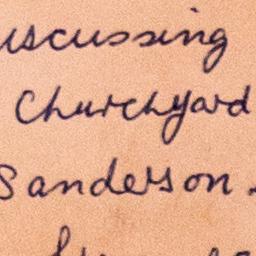 iscussing
Churchyard
Sanderson